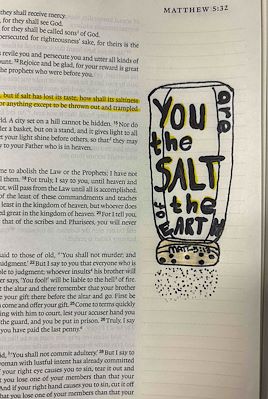 MATTHEW 5:32
they shall receive mercy.
, for they shall see God.
for they shall be called sons of God.
persecuted for righteousness' sake, for theirs is the
revile you and persecute you and utter all kinds of
ount. 12 Rejoice and be glad, for your reward is great
he prophets who were before you.
, but if salt has lost its taste, how shall its saltiness
or anything except to be thrown out and trampled
rld. A city set on a hill cannot be hidden. 15 Nor do
er a basket, but on a stand, and it gives light to all
t your light shine before others, so that they may
y to your Father who is in heaven.
me to abolish the Law or the Prophets; I have not
l them. 18 For truly, I say to you, until heaven and
ot, will pass from the Law until all is accomplished.
of the least of these commandments and teaches
least in the kingdom of heaven, but whoever does
ed great in the kingdom of heaven. 20 For I tell you,
that of the scribes and Pharisees, you will never
said to those of old, 'You shall not murder; and
judgment.' 22 But I say to you that everyone who is
ble to judgment; whoever insults his brother will
er says, 'You fool!' will be liable to the hell of fire.
at the altar and there remember that your brother
e your gift there before the altar and go. First be
n come and offer your gift. 25 Come to terms quickly
ing with him to court, lest your accuser hand you
the guard, and you be put in prison. 26 Truly, I say
you have paid the last penny.
id, 'You shall not commit adultery.' 28 But I say to
woman with lustful intent has already committed
f your right eye causes you to sin, tear it out and
t you lose one of your members than that your
And if your right hand causes you to sin, cut it off
that you lose one of your members than that your
YOU are
the
SALT
of the
EARTH